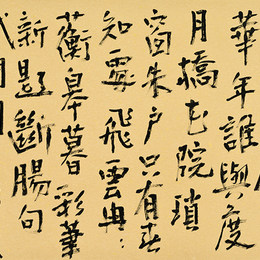 華年誰與度
月橋花院瑣
窗朱户只有春
知處飛雲冉〻
蘅皋暮彩筆
新題斷腸句